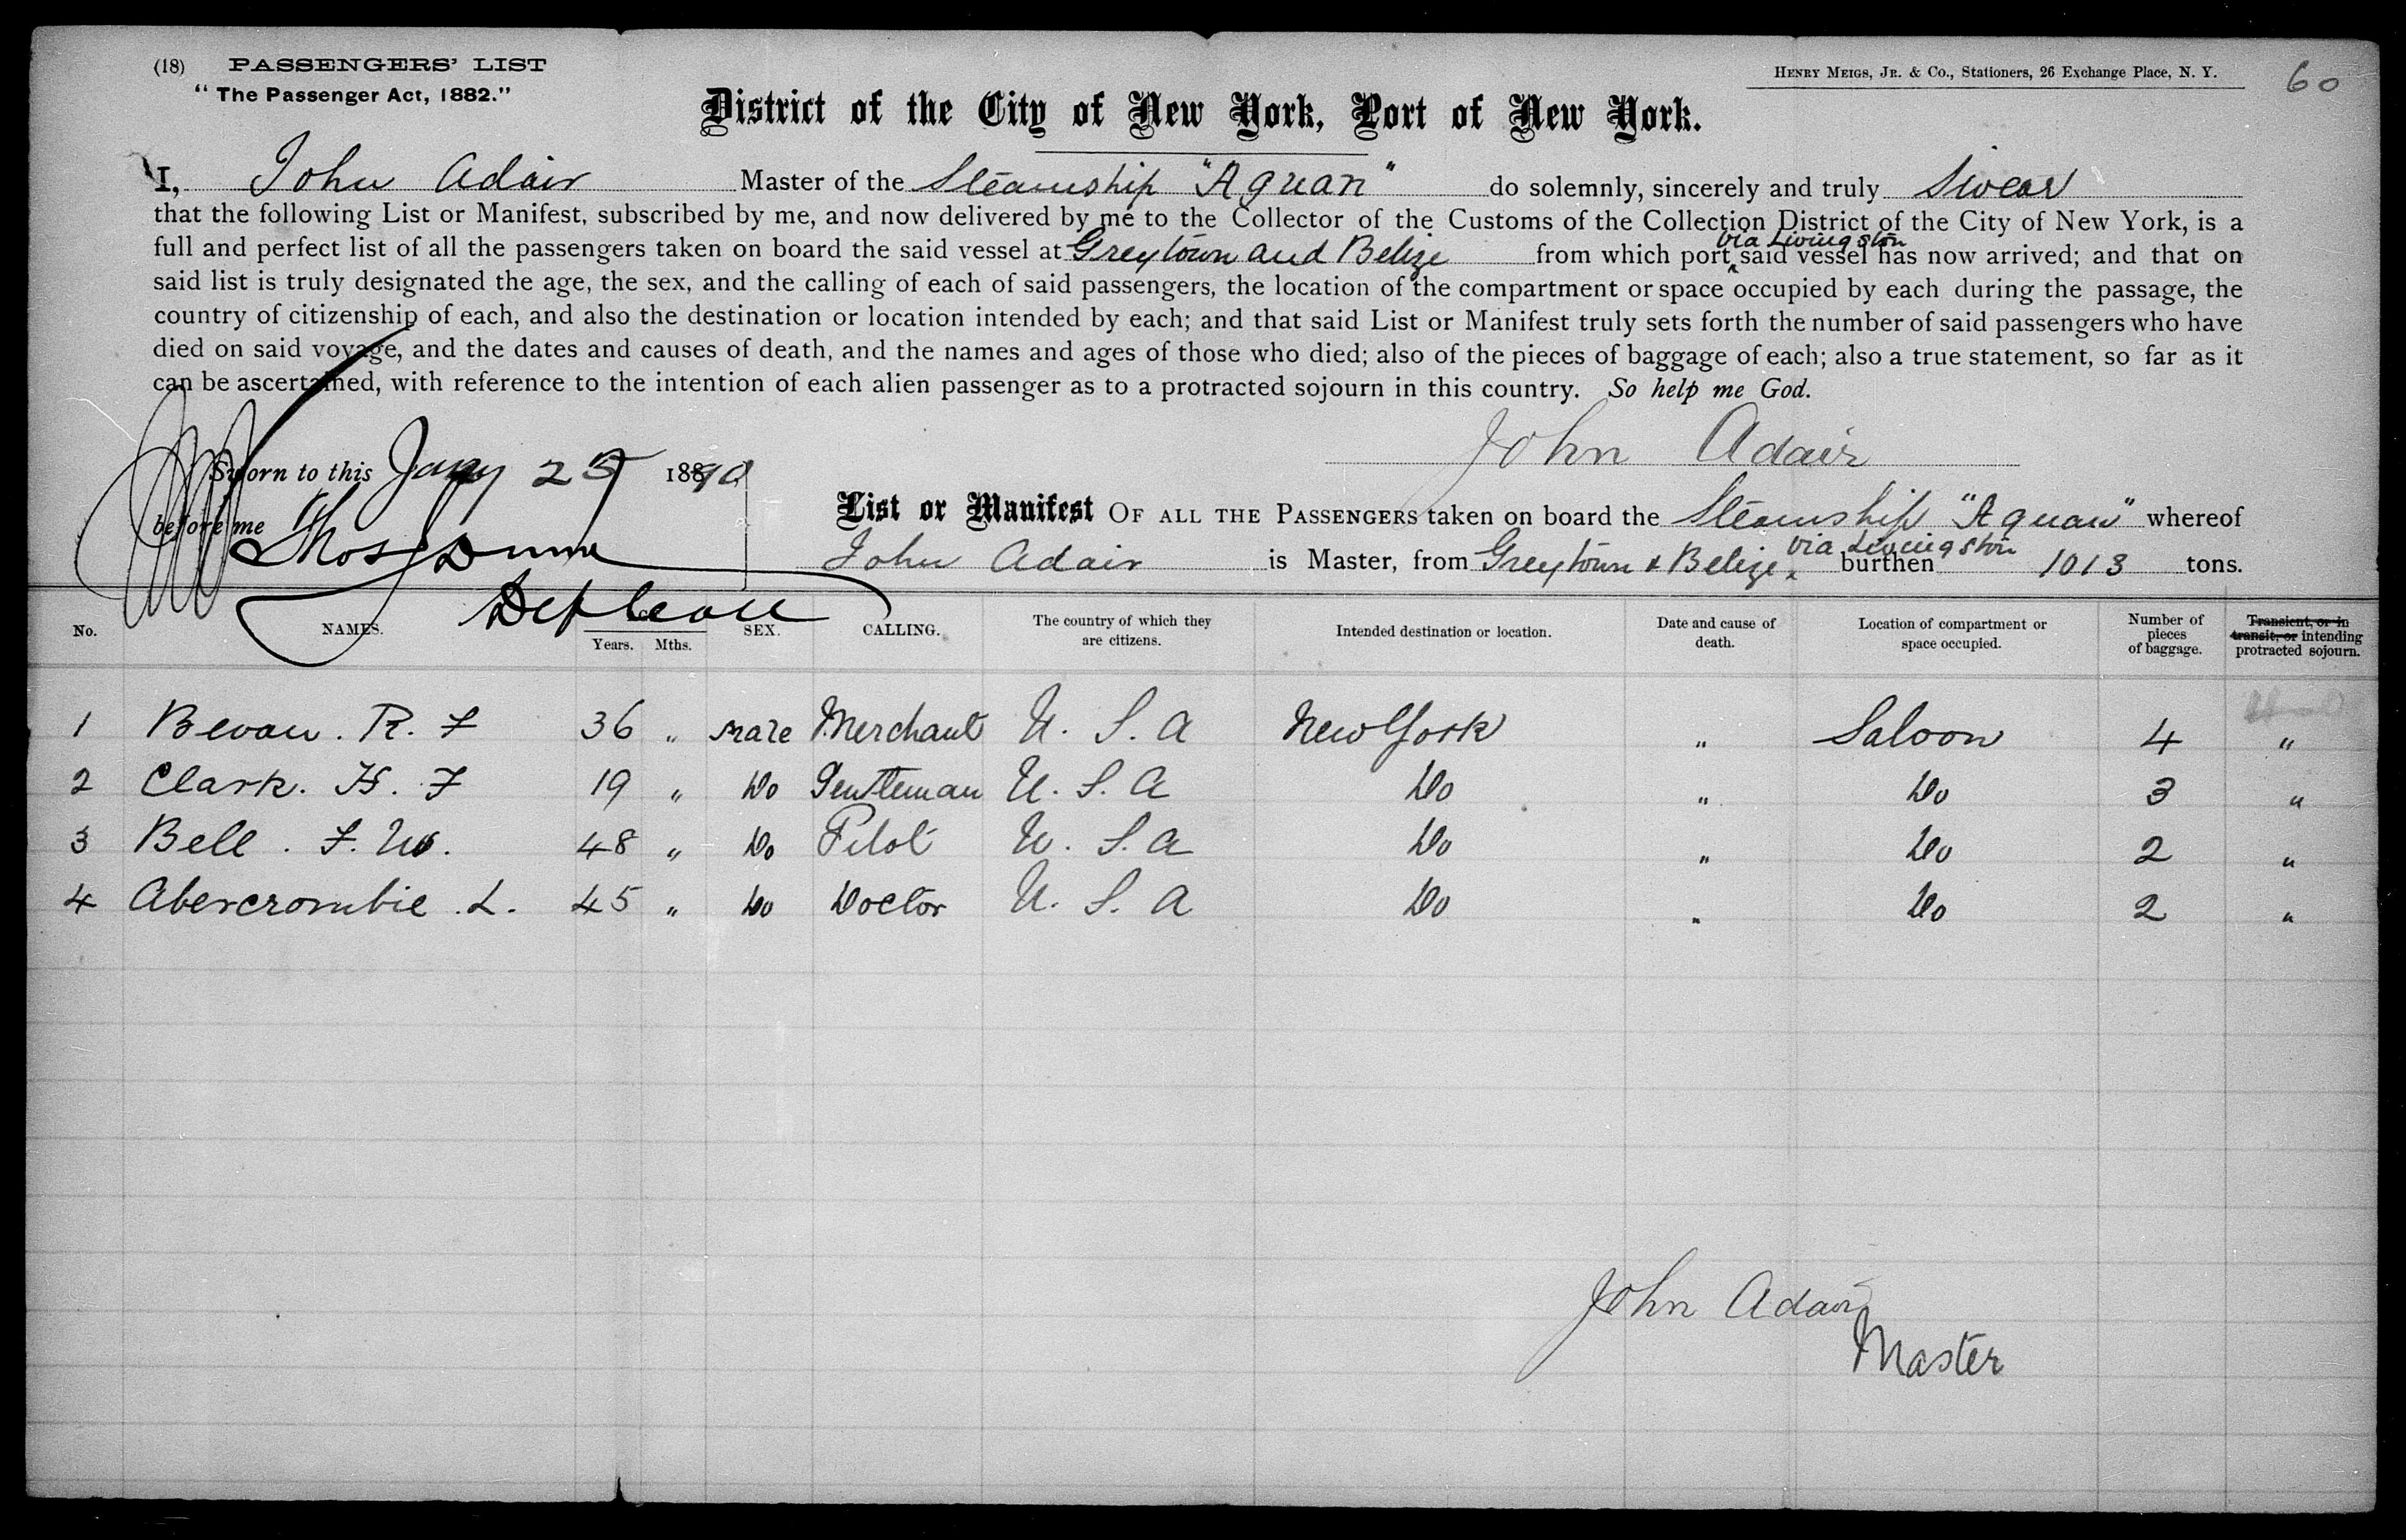 (18) PASSENGERS' LIST
"The Passenger Act, 1882."
HENRY MEIGS, JR. & CO., Stationers, 26 Exchange Place, N. Y.
60
District of the City of New York, Port of New York.
I, John Adair Master of the Steamship "Aguan" do solemnly, sincerely and truly Swear
that the following List or Manifest, subscribed by me, and now delivered by me to the Collector of the Customs of the Collection District of the City of New York, is a
via Livingston
full and perfect list of all the passengers taken on board the said vessel at Greytown and Belize from which port ‸ said vessel has now arrived; and that on
said list is truly designated the age, the sex, and the calling of each of said passengers, the location of the compartment or space occupied by each during the passage, the
country of citizenship of each, and also the destination or location intended by each; and that said List or Manifest truly sets forth the number of said passengers who have
died on said voyage, and the dates and causes of death, and the names and ages of those who died; also of the pieces of baggage of each; also a true statement, so far as it
can be ascertained, with reference to the intention of each alien passenger as to a protracted sojourn in this country. So help me God.
John Adair
Sworn to this Jany 25 1890
before me
Thos Dunn
Dep
List or Manifest OF ALL THE PASSENGERS taken on board the Steamship "Aguan" whereof
via Livingston
John Adair is Master, from Greytown & Belize ‸ burthen 1013 tons.
No. NAMES. Years. Mths. SEX. CALLING. The country of which they are citizens. Intended destination or location. Date and cause of death. Location of compartment or space occupied. Number of pieces of baggage. Transient, or in transit, or intending protracted sojourn.
1 Bevan. R. F 36 " Male Merchant U. S. A New York " Saloon 4 "
2 Clark. H. F 19 " Do Gentleman U. S. A Do " Do 3 "
3 Bell. F. W. 48 " Do Pilot U. S. A Do " Do 2 "
4 Abercrombie. L. 45 " Do Doctor U. S. A Do " Do 2 "
John Adair
Master